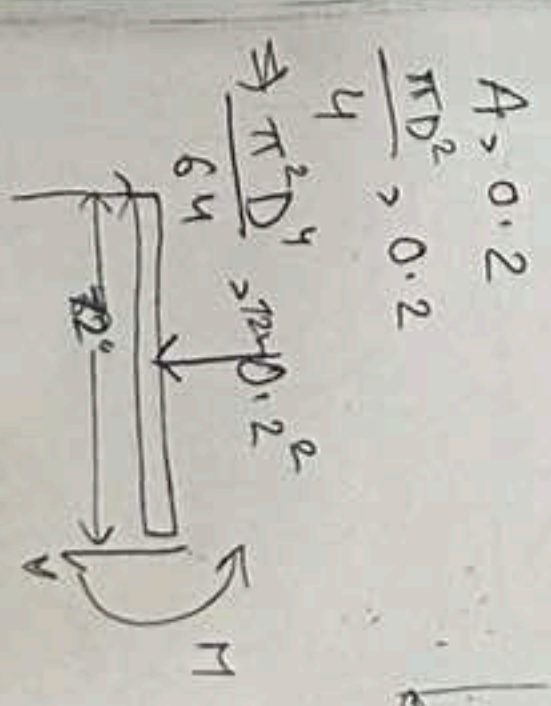 A > 0.2
πD²/4 > 0.2
⇒ π²D⁴/64 > 0.2²
V
M